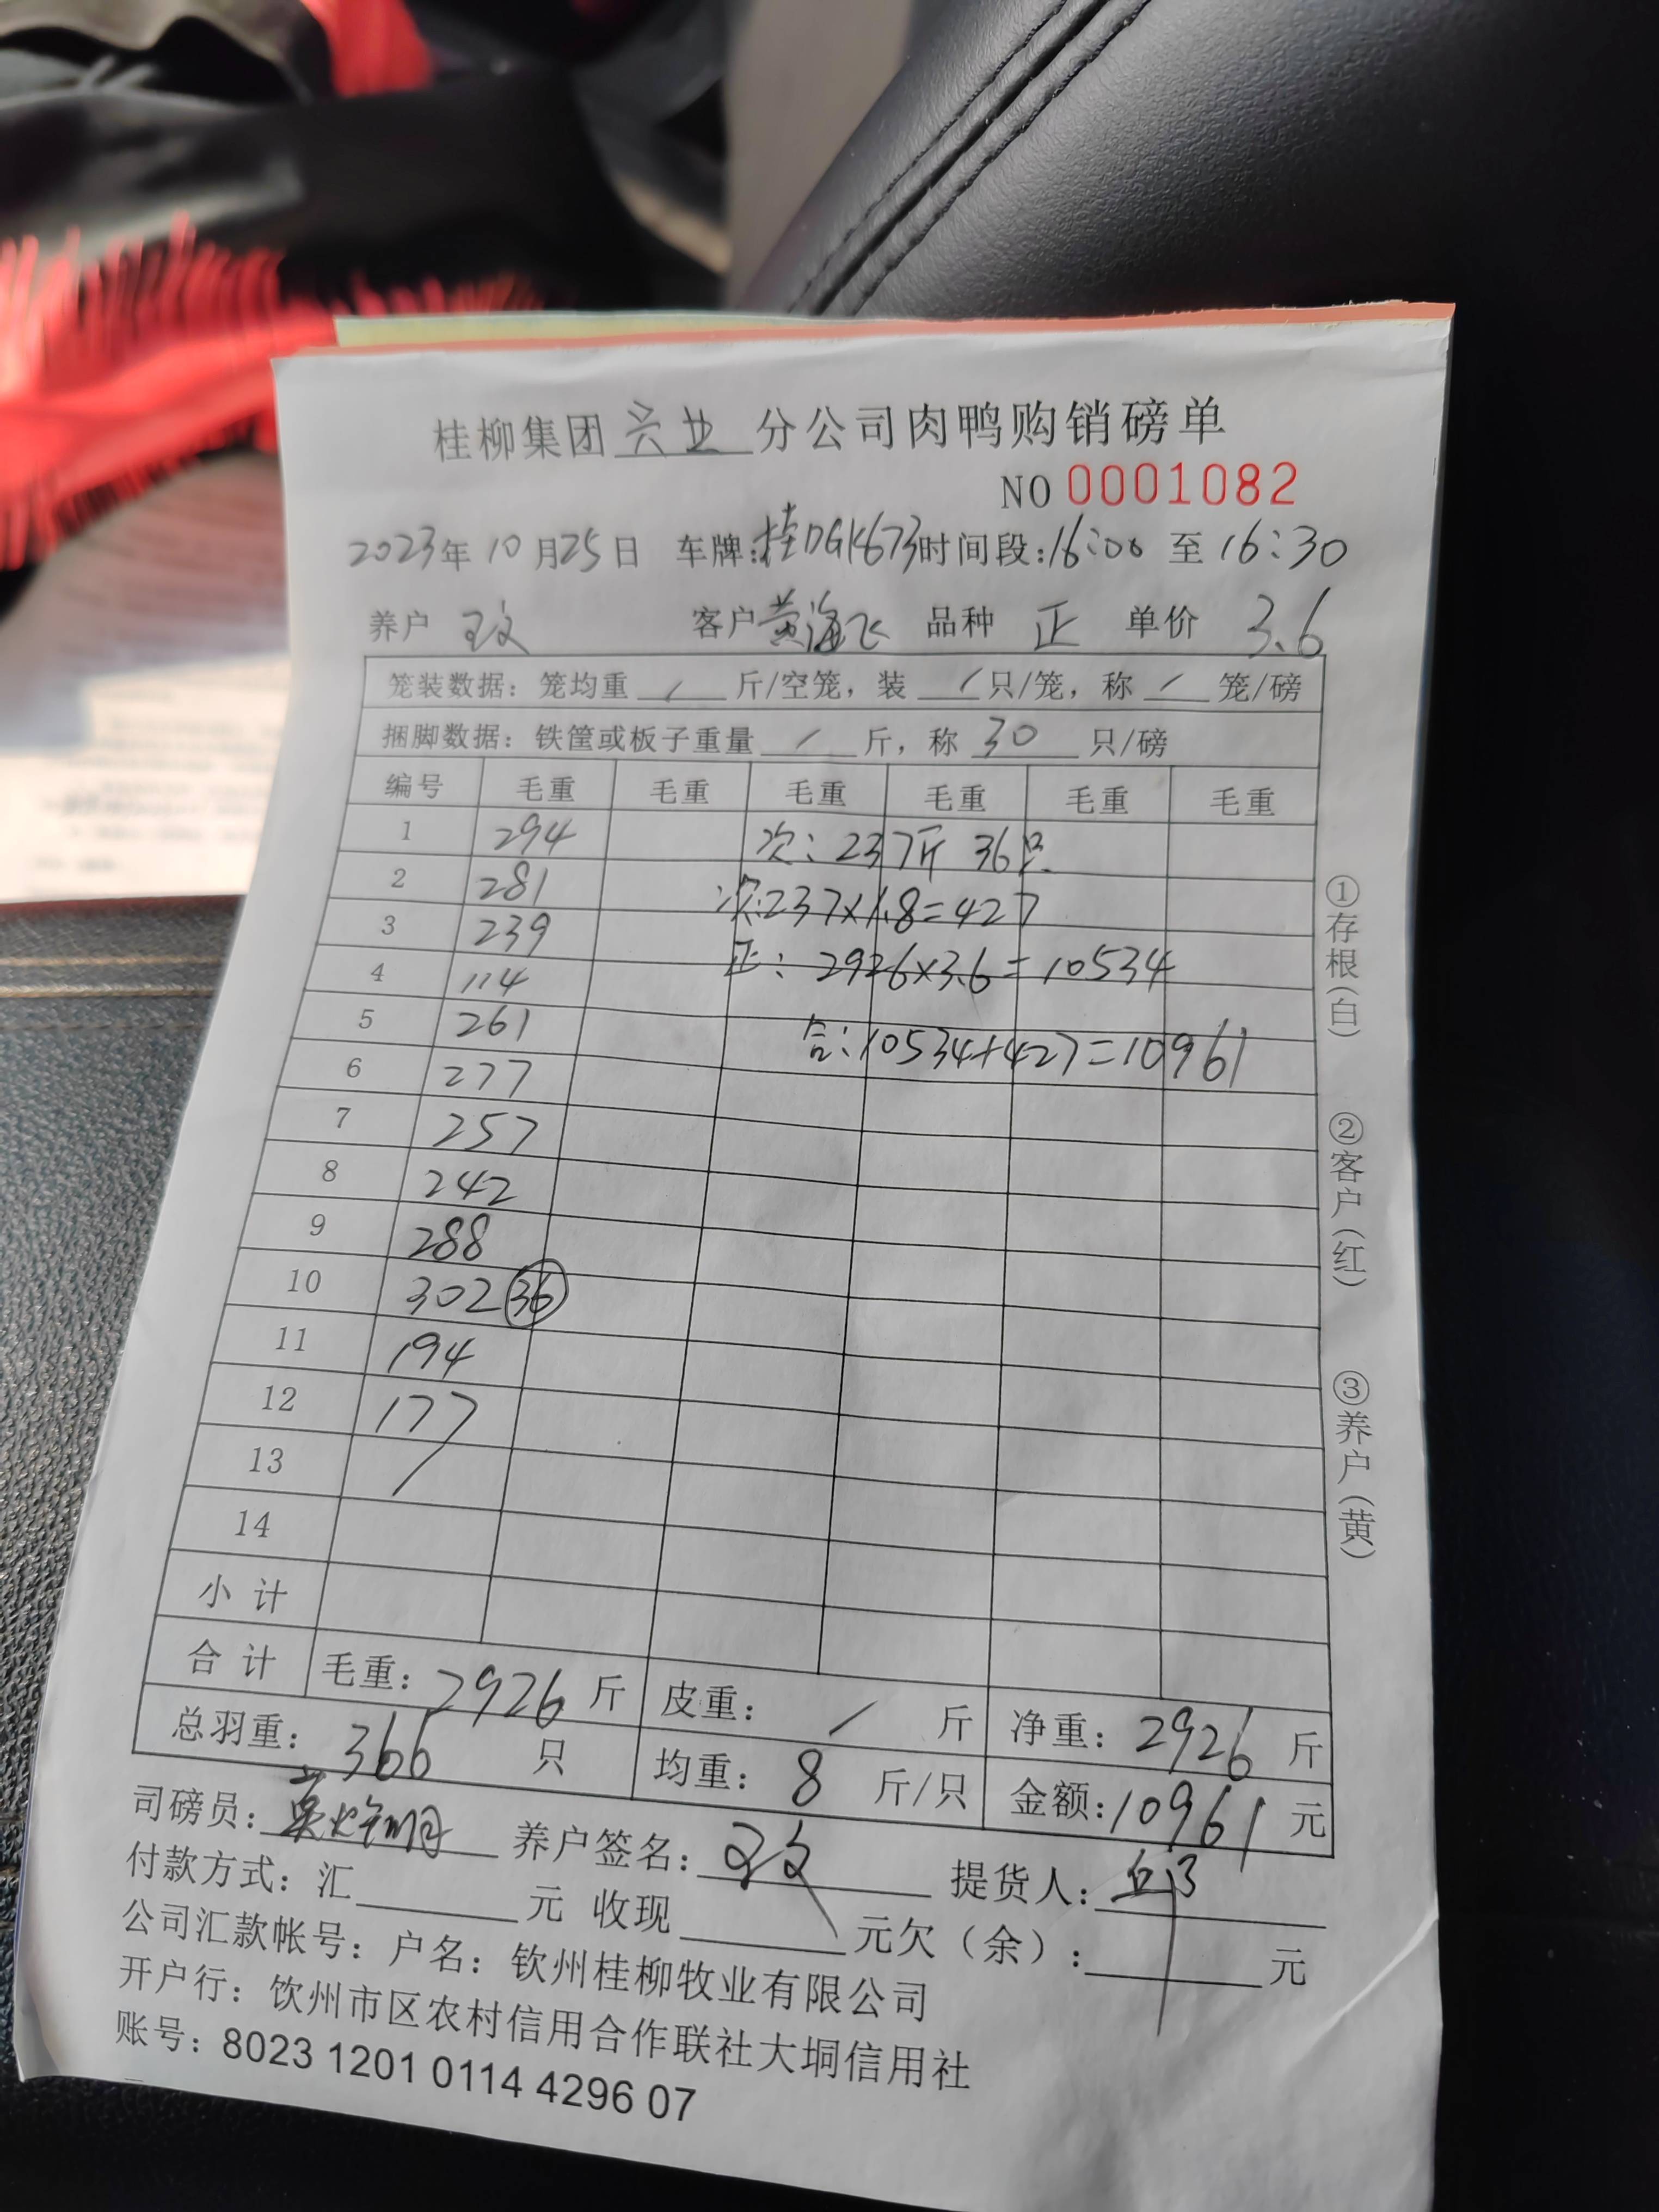 桂柳集团兴业分公司肉鸭购销磅单
NO 0001082
2023年10月25日 车牌:桂DGK673 时间段:16:00 至 16:30
养户 王文 客户 黄海飞 品种 正 单价 3.6
笼装数据: 笼均重 / 斤/空笼, 装 / 只/笼, 称 / 笼/磅
捆脚数据: 铁筐或板子重量 / 斤, 称 30 只/磅
编号 毛重 毛重 毛重 毛重 毛重 毛重
1 294 次: 237斤 36只
2 281 次:237×1.8=427
3 239 正: 2926×3.6=10534
4 114
5 261 合:10534+427=10961
6 277
7 257
8 242
9 288
10 302 36
11 194
12 177
13 /
14
小计
合计 毛重: 2926 斤 皮重: / 斤 净重: 2926 斤
总羽重: 366 只 均重: 8 斤/只 金额:10961元
司磅员: 养户签名: 提货人:
付款方式: 汇 元 收现 元欠(余): 元
公司汇款帐号: 户名: 钦州桂柳牧业有限公司
开户行: 饮州市区农村信用合作联社大垌信用社
账号: 8023 1201 0114 4296 07
①存根(白)
②客户(红)
③养户(黄)